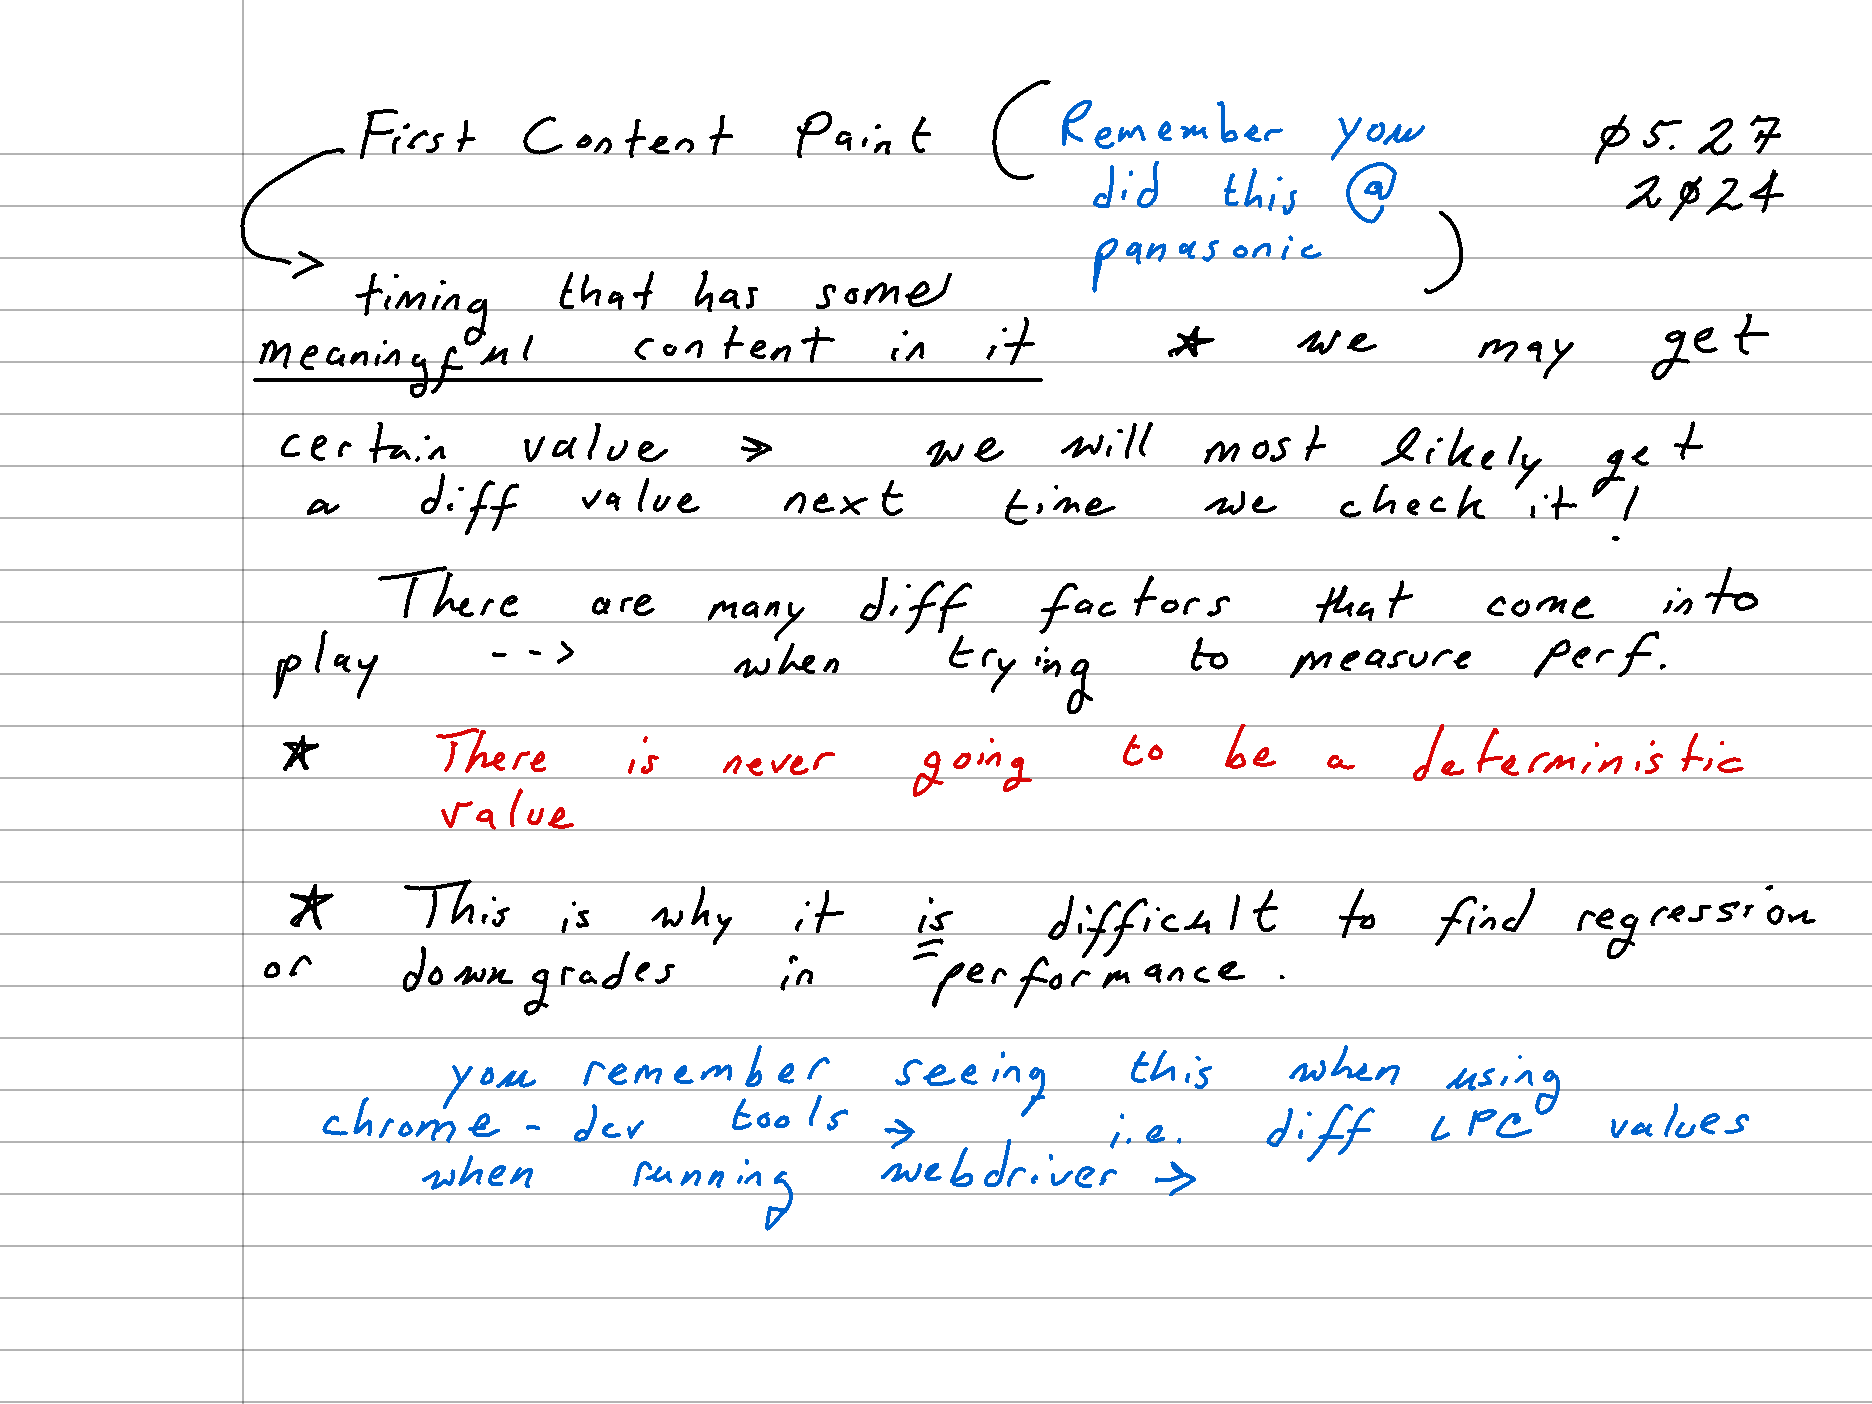 First Content Paint (Remember you
did this @
panasonic)
05.27
2024
→ timing that has some
meaningful content in it * we may get
certain value → we will most likely get
a diff value next time we check it!
There are many diff factors that come into
play --> when trying to measure perf.
* There is never going to be a deterministic
value
* This is why it is difficult to find regression
or downgrades in performance.
you remember seeing this when using
chrome-dev tools → i.e. diff LPC values
when running webdriver →